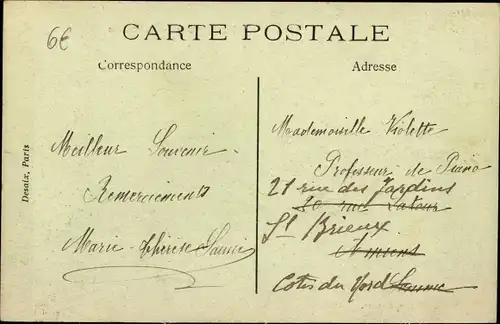 6€
CARTE POSTALE
Correspondance
Adresse
Desaix, Paris
Meilleur Souvenir
Remerciements
Marie-Thérèse
Mademoiselle Violette
Professeur de Piano
21 rue des Jardins
20 rue
St Brieux
Amiens
Cotes du Nord Somme